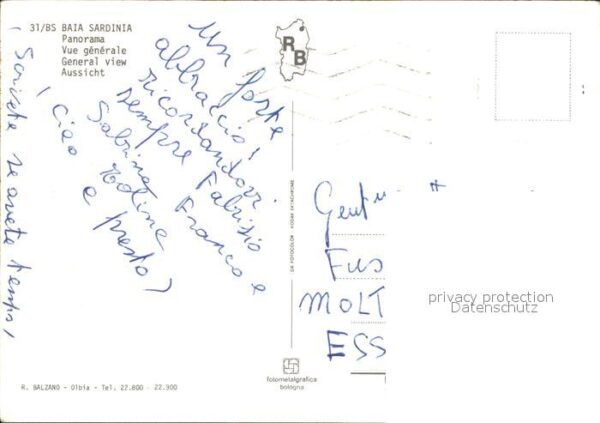 31/BS BAIA SARDINIA
Panorama
Vue générale
General view
Aussicht
RB
Un forte
abbraccio!
ricordandovi
sempre Fabrizio
Sabrina Franco e
e presto!
Ciao
Scrivete se avete tempo,
DA FOTOCOLOR KODAK EKTACHROME
Gent
Fus
MOLT
ESS
privacy protection
Datenschutz
fotometalgrafica
bologna
R. BALZANO - Olbia - Tel. 22.800 - 22.900